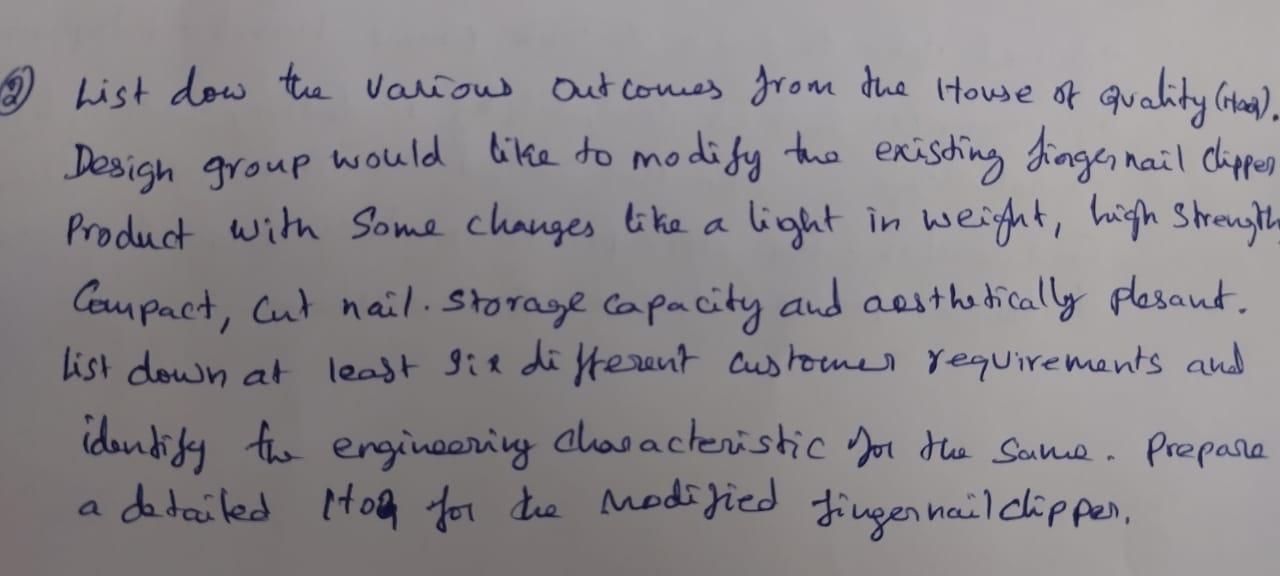 ② List dow the various outcomes from the House of Quality (HoQ).
Design group would like to modify the existing fingernail clipper
Product with Some changes like a light in weight, high strength,
Compact, Cut nail. storage capacity and aesthetically plesant.
List down at least six different customer requirements and
identify the engineering characteristic for the same. Prepare
a detailed HoQ for the modified fingernail clipper.